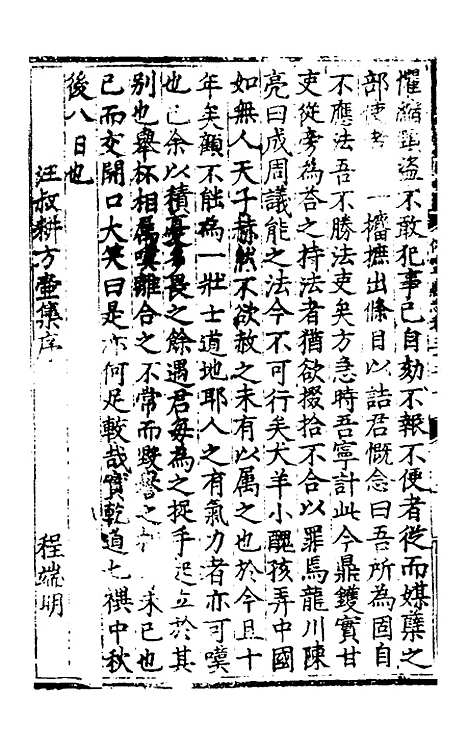 懼縮盜不敢犯事已自劾不報不便者從而媒糵之
部使者一一擿摭出條目以詰君慨念曰吾所為固自
不應法吾不勝法吏矣方急時吾寧計此今鼎鑊實甘
吏從旁為答之持法者猶欲掇拾不合以罪馬龍川陳
亮曰成周議能之法今不可行矣大羊小醜孩弄中國
如無人天子赫然不欲赦之未有以属之也於今且十
年矣顧不能為一壯士道地耶人之有氣力者亦可嘆
也已余以積憂多畏之餘遇君每為之捉手起立於其
别也舉杯相属嘆離合之不常而毀譽之 来已也
已而交開口大笑曰是亦何足較哉實乾道七禩中秋
後八日也
汪叔耕方壷集序 程端明